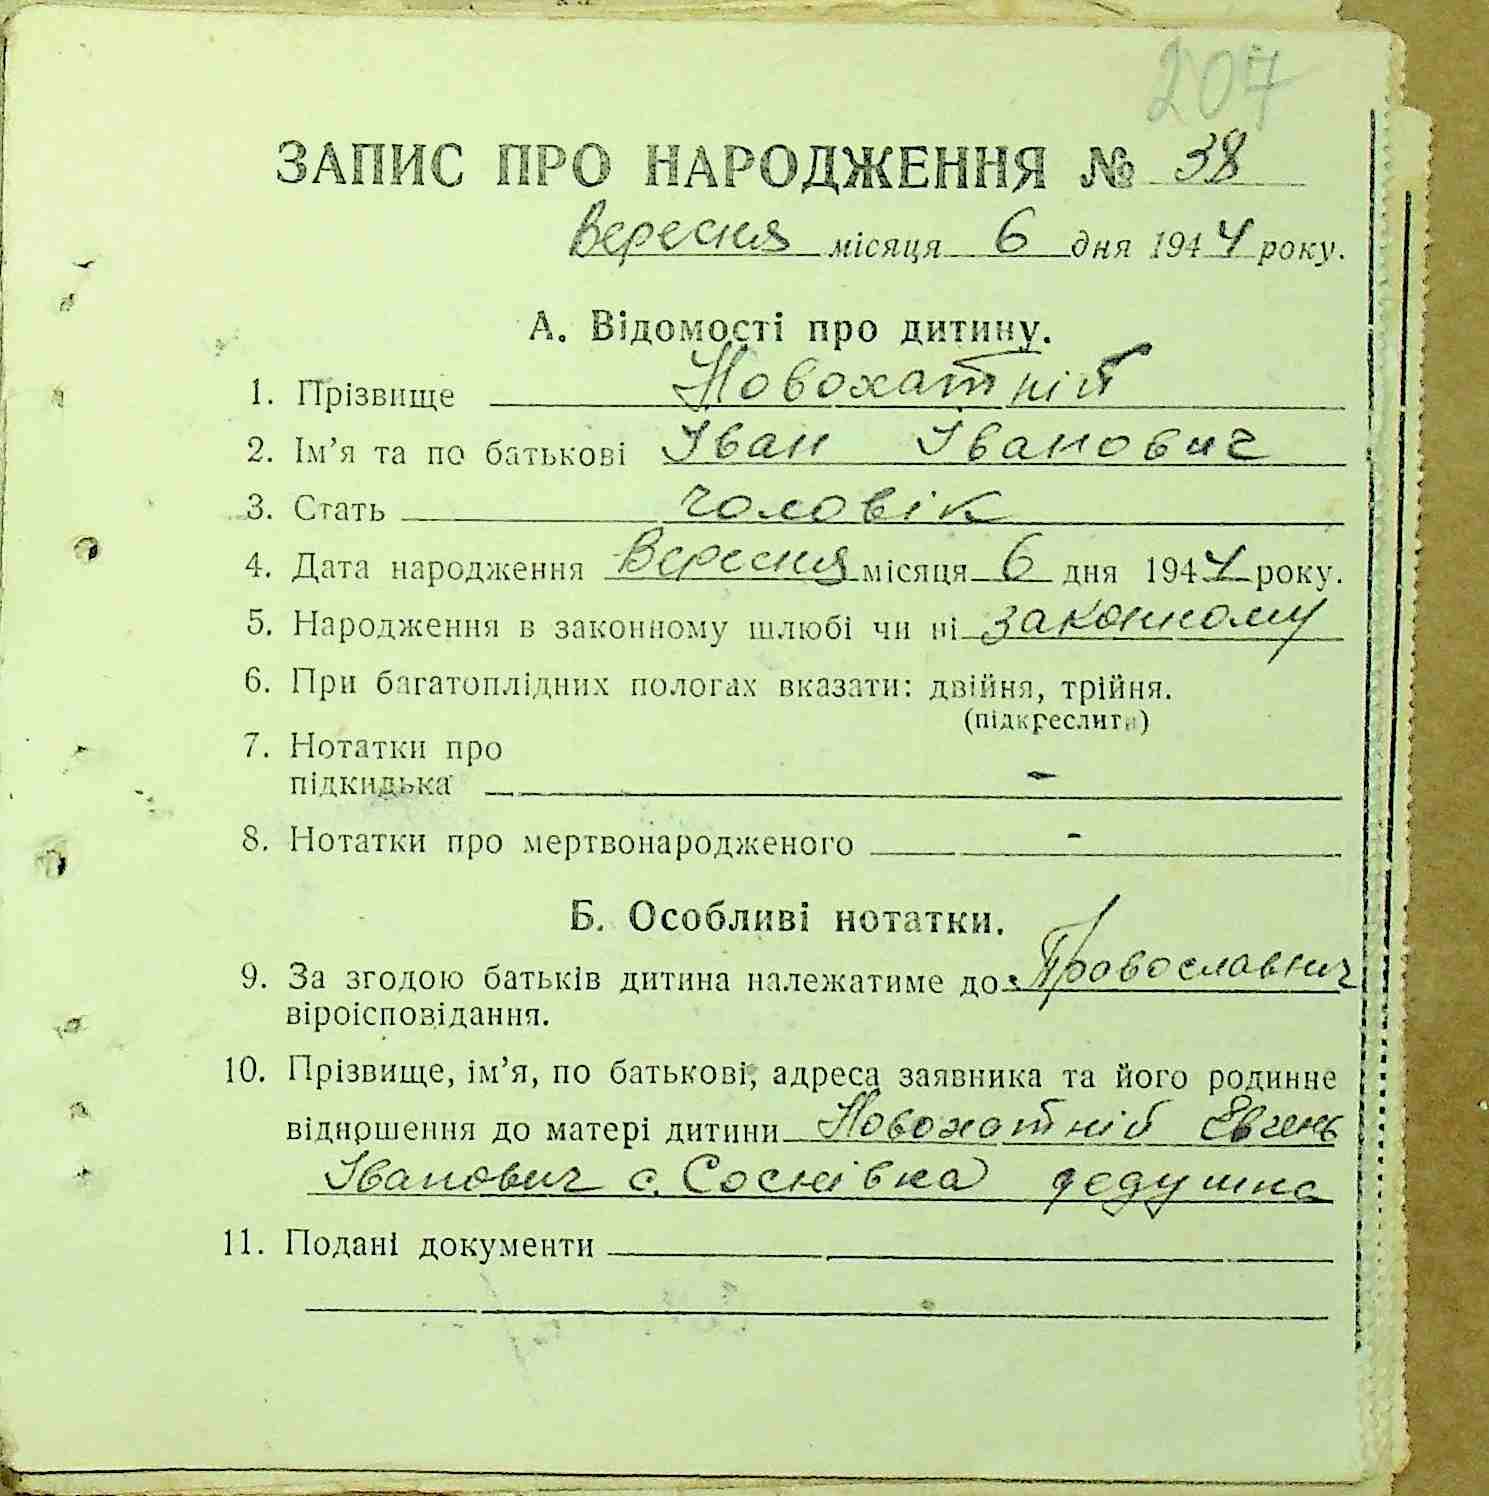 207
ЗАПИС ПРО НАРОДЖЕННЯ № 38
Вересня місяця 6 дня 1944 року.
А. Відомості про дитину.
1. Прізвище Новохатній
2. Ім'я та по батькові Іван Іванович
3. Стать чоловік
4. Дата народження Вересня місяця 6 дня 1944 року.
5. Народження в законному шлюбі чи ні законному
6. При багатоплідних пологах вказати: двійня, трійня.
(підкреслити)
7. Нотатки про
підкидька -
8. Нотатки про мертвонародженого -
Б. Особливі нотатки.
9. За згодою батьків дитина належатиме до Провославних
віроісповідання.
10. Прізвище, ім'я, по батькові, адреса заявника та його родинне
відношення до матері дитини Новохатній Евгень
Іванович с. Соснівка дедушка
11. Подані документи